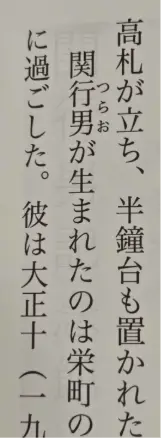 高札が立ち、半鐘台も置かれた
関行男が生まれたのは栄町の
つらお
に過ごした。彼は大正十(一九